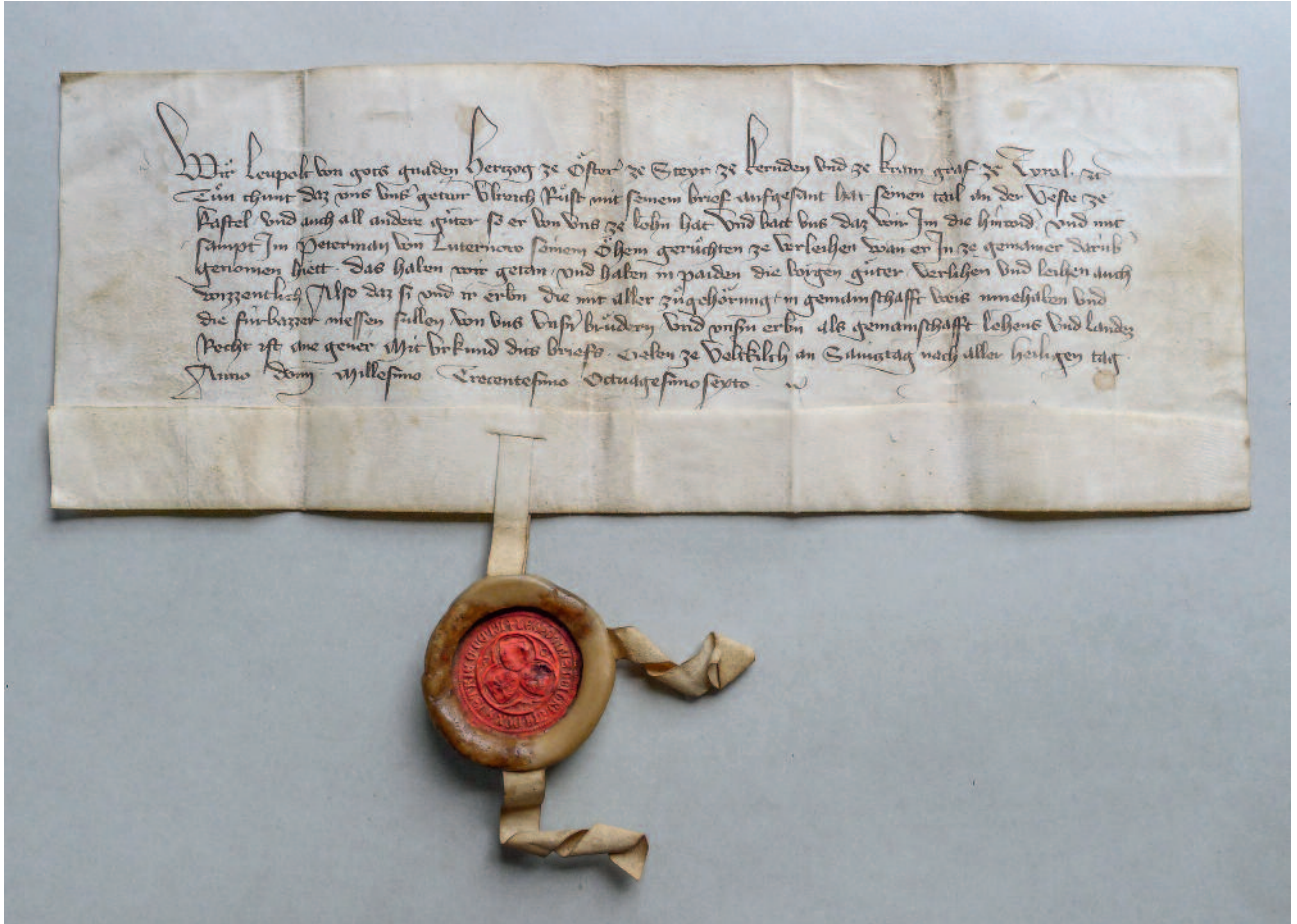 Wir Leupolt von gots gnaden Hertzog ze Öster ze Steyr ze kernden und ze krain graf ze Tyrol ꝛc
Tůn chunt daz uns unsͬ getrewr Ulreich Růst mit seinem brief aufgesant hat seinen tail an der veste ze
kastel Und auch all andere gůter so er von uns ze lehn hat Und batt uns daz wir Im die hinwid und mit
sampt Im Peterman von Luternow seinem Öhem gerůchten ze verleihen wan er In ze gemainer darub
genomen hiett · das haben wir getan · und haben in paiden die vorgen gůter verlihen und leihen auch
wizzentlich Also daz si und ir erbn die mit aller zůgehörung in gemainschafft weis innehaben und
die fürbazzer niessen sullen von uns unsn brůdern und unsn erbn als gemainschafft lehens und landes
Recht ist ane gever Mit urkund dits briefs · Geben ze Veltkilch an Samstag nach aller heiligen tag
Anno domi Millesimo Trecentesimo Octuagesimo sexto